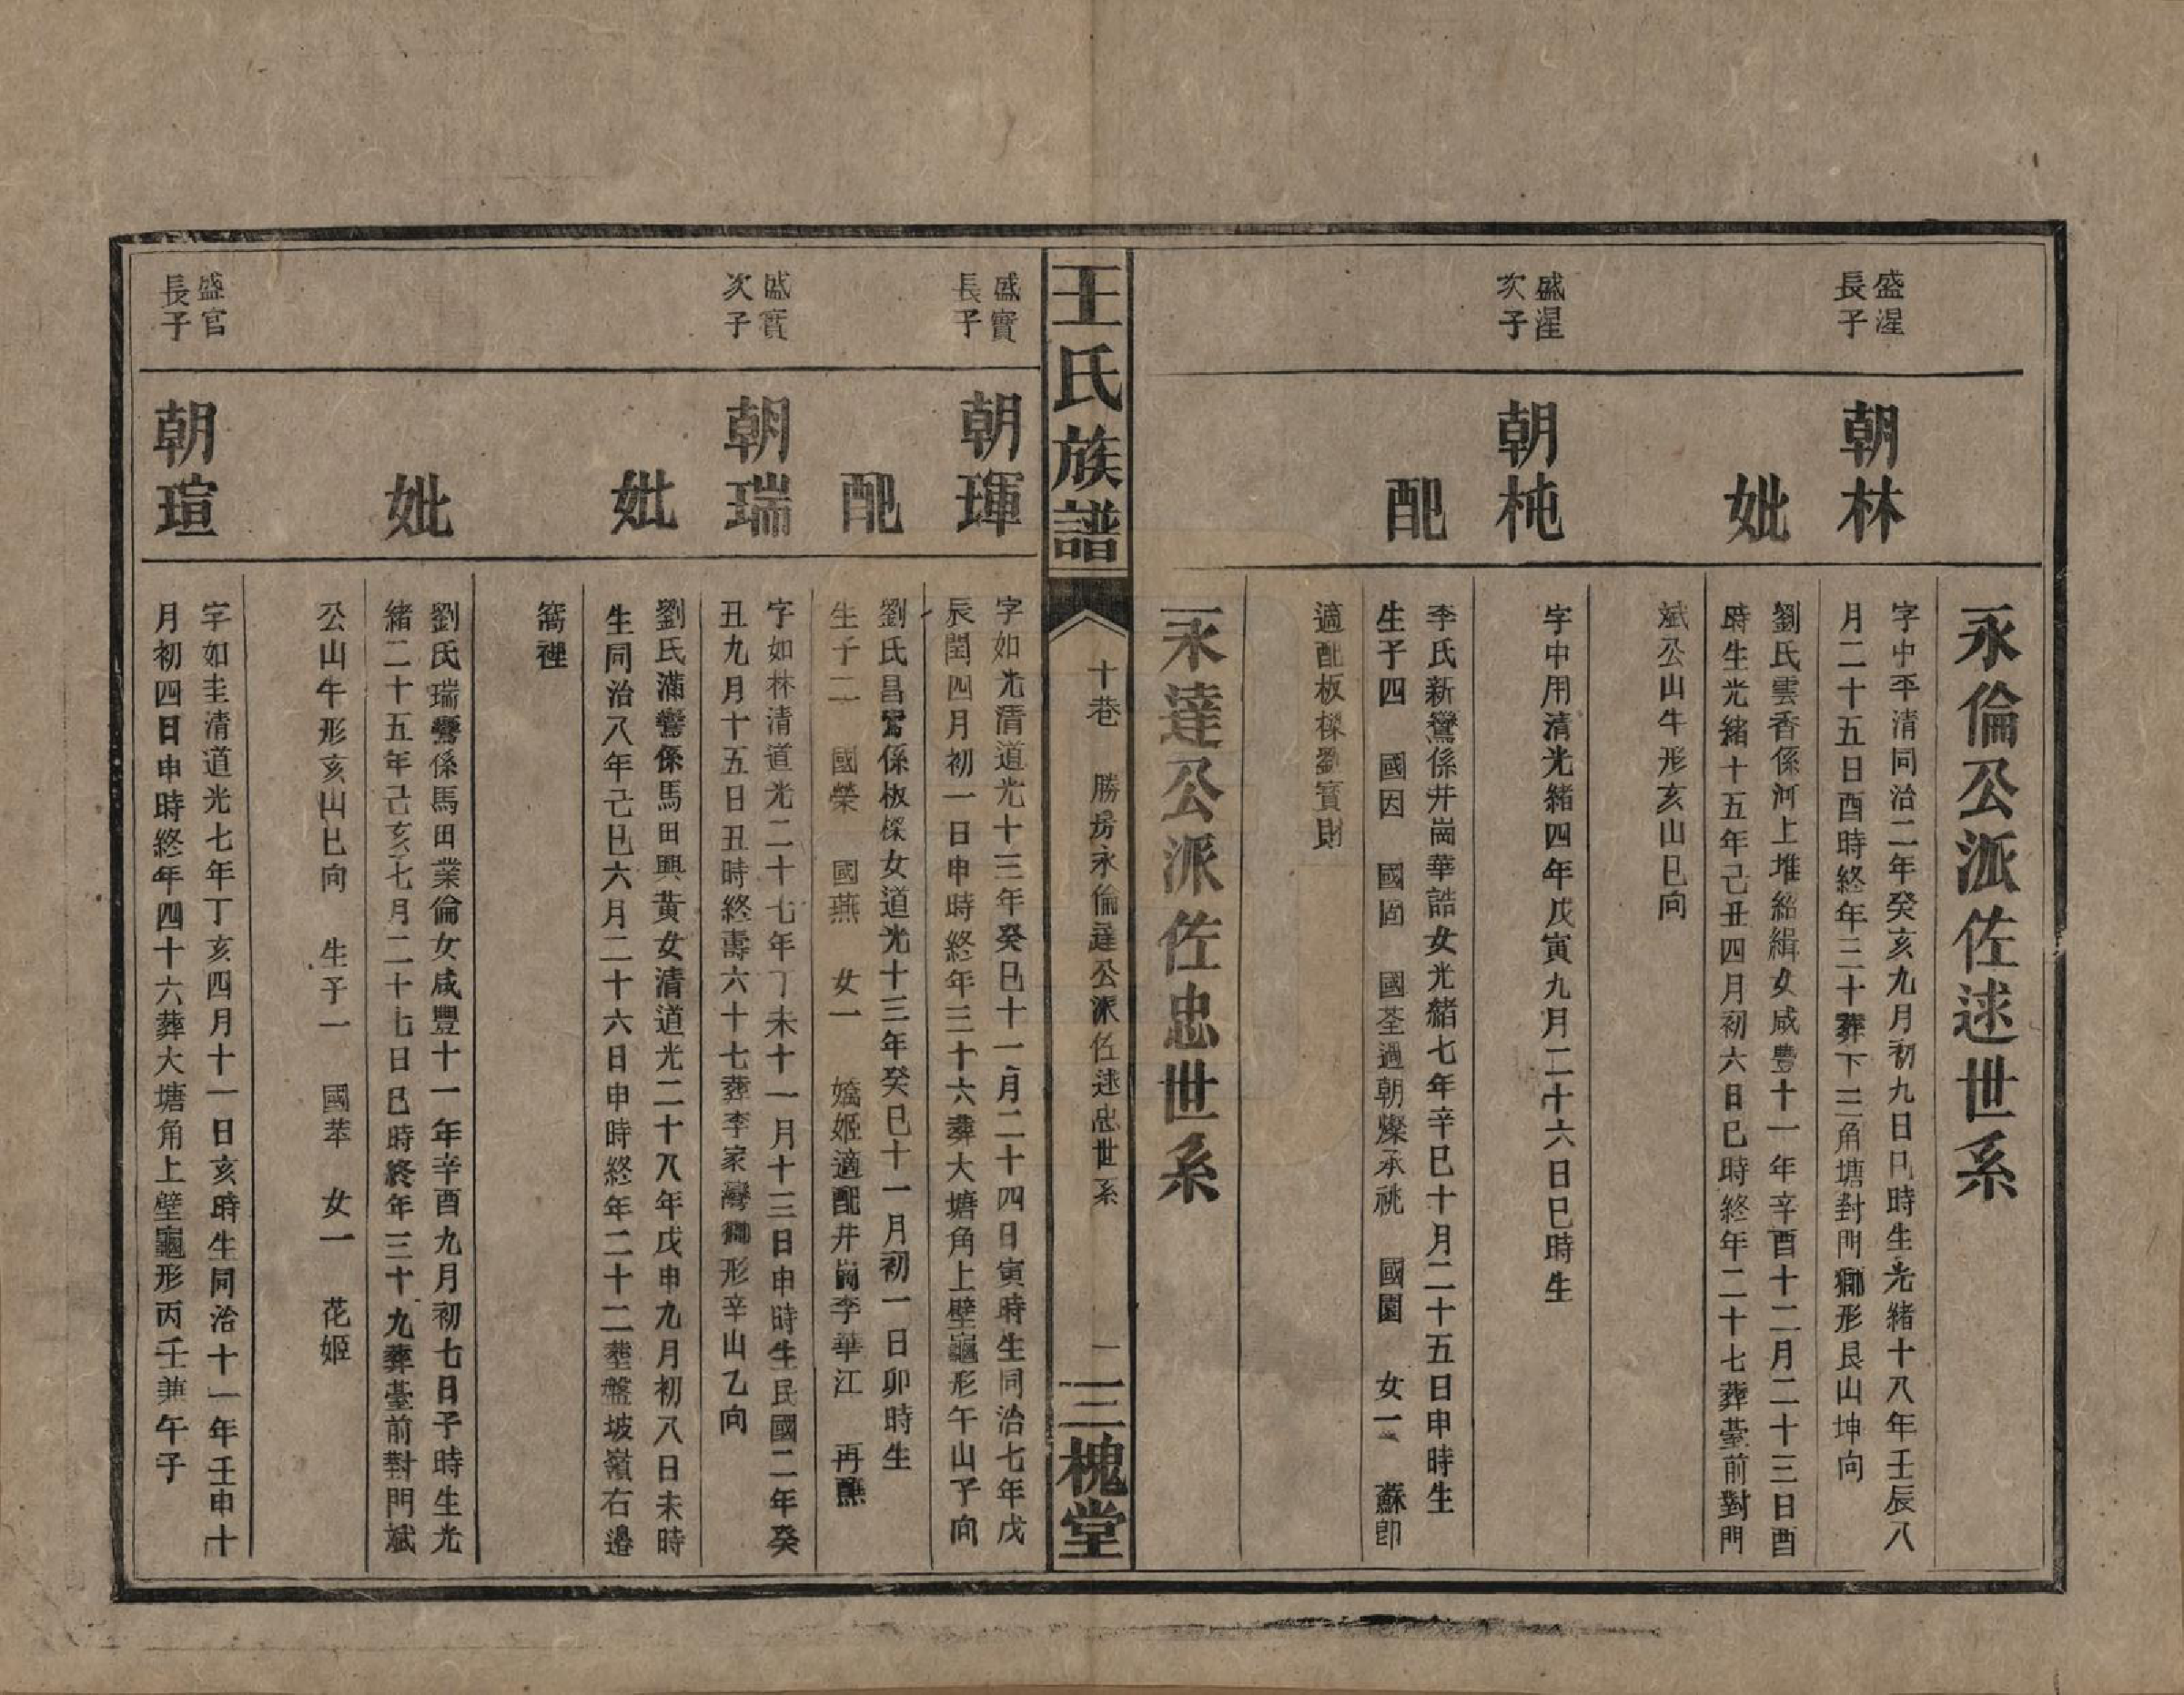 永倫公派佐逑世系
盛湦長子
朝林
字中平清同治二年癸亥九月初九日巳時生光緒十八年壬辰八
月二十五日酉時終年三十葬下三角塘對門獅形艮山坤向
妣
劉氏雲香係河上堆紹緝女咸豐十一年辛酉十二月二十三日酉
時生光緒十五年己丑四月初六日巳時終年二十七葬臺前對門
斌公山牛形亥山巳向
盛湦次子
朝杶
字中用清光緒四年戊寅九月二十六日巳時生
配
李氏新鸞係井崗華誥女光緒七年辛巳十月二十五日申時生
生子四 國因 國固 國荃過朝燦承祧 國園 女一 蘇卽
適配板樑劉寶財
永達公派佐忠世系
王氏族譜
十巷 勝房永倫達公派佐逑忠世系
一
三槐堂
盛寳長子
朝琿
字如光清道光十三年癸巳十一月二十四日寅時生同治七年戊
辰閏四月初一日申時終年三十六葬大塘角上壁龜形午山子向
配
劉氏昌官係板樑女道光十三年癸巳十一月初一日卯時生
生子二 國榮 國燕 女一 嬌姬適配井崗李華江 再醮
盛寳次子
朝瑞
字如林清道光二十七年丁未十一月十三日申時生民國二年癸
丑九月十五日丑時終壽六十七葬李家灣獅形辛山乙向
妣
劉氏滿鸞係馬田興黃女清道光二十八年戊申九月初八日未時
生同治八年己巳六月二十六日申時終年二十二塟盤坡嶺右邉
窩裡
妣
劉氏瑞鸞係馬田業倫女咸豐十一年辛酉九月初七日子時生光
緒二十五年己亥七月二十七日巳時終年三十九葬臺前對門斌
公山牛形亥山巳向 生子一 國苹 女一 花姬
盛官長子
朝瑄
字如圭清道光七年丁亥四月十一日亥時生同治十一年壬申十
月初四日申時終年四十六葬大塘角上壁龜形丙壬兼午子